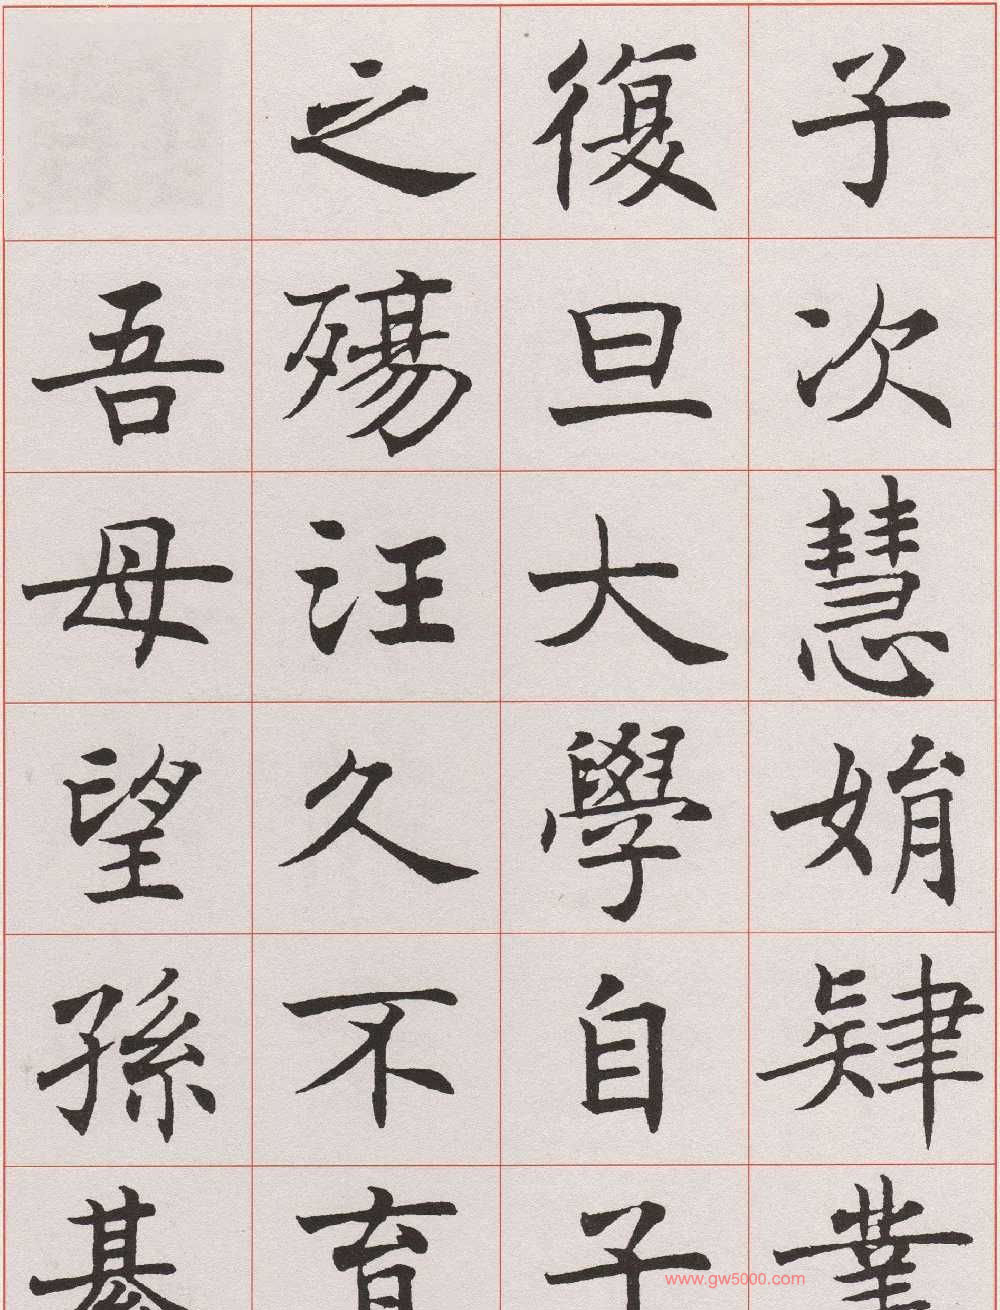 子次慧娟肄業
復旦大學自子
之殤汪久不育
吾母望孫綦
www.gw5000.com